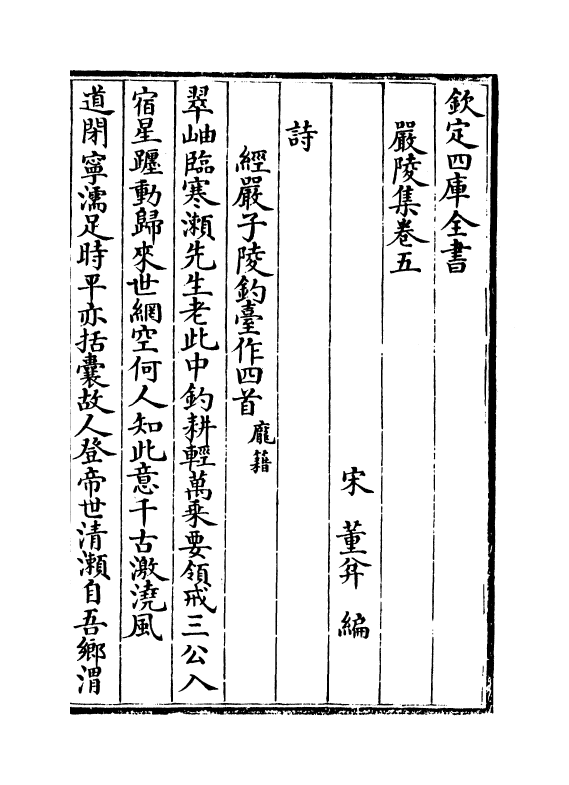 欽定四庫全書
嚴陵集卷五
宋 董弅 編
詩
經嚴子陵釣臺作四首 龐籍
翠岫臨寒瀨先生老此中釣耕輕萬乗要領戒三公入
宿星躔動歸來世網空何人知此意千古激澆風
道閉寧濡足時平亦括囊故人登帝世清瀨自吾鄉渭